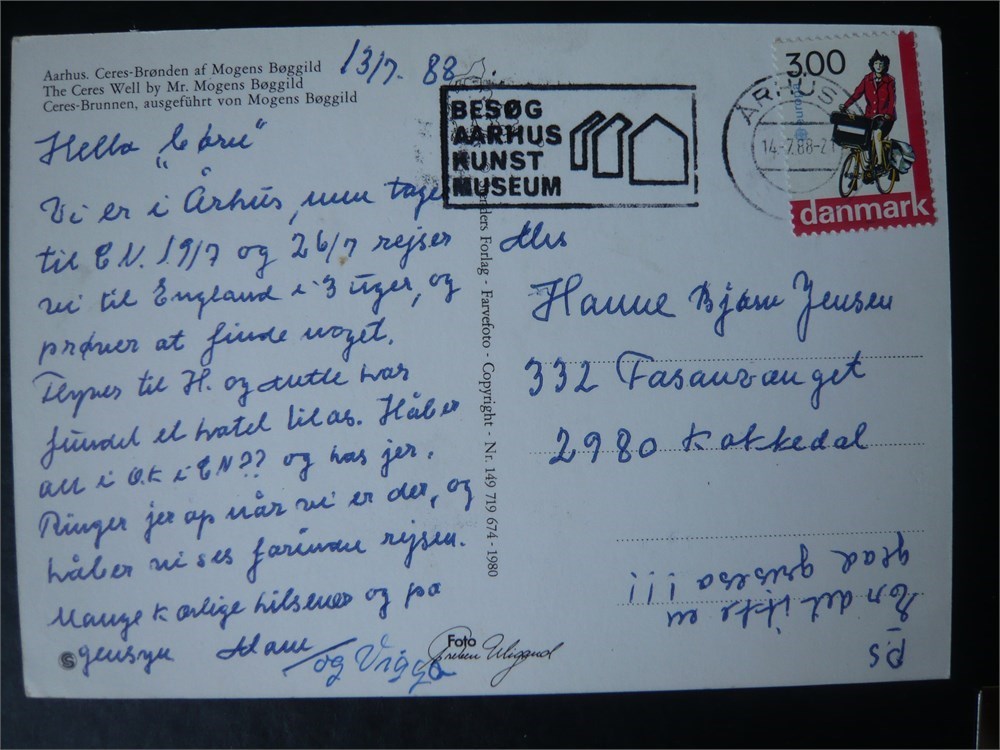 Aarhus. Ceres-Brønden af Mogens Bøggild
The Ceres Well by Mr. Mogens Bøggild
Ceres-Brunnen, ausgeführt von Mogens Bøggild
13/7. 88.
Hello
Vi er i Århus, men tager
til E.N. 19/7 og 26/7 rejser
vi til England i 3 uger, og
prøver at finde noget.
til H. og
fundet et hotel til os. Håber
alt i O.K i EN?? og hos jer.
Ringer jer op når vi er der, og
håber vi ses forinden rejsen.
Mange kærlige hilsener og på
gensyn
og Viggo
BESØG
AARHUS
KUNST
MUSEUM
ÅRHUS
14-7.88-21
3.00
europa
danmark
enders Forlag - Farvefoto - Copyright - Nr. 149 719 674 - 1980
Hanne Bjørn Jensen
332 Fasanvænget
2980 Kokkedal
P.S
Er det ikke en
glad griseso !!!
Foto